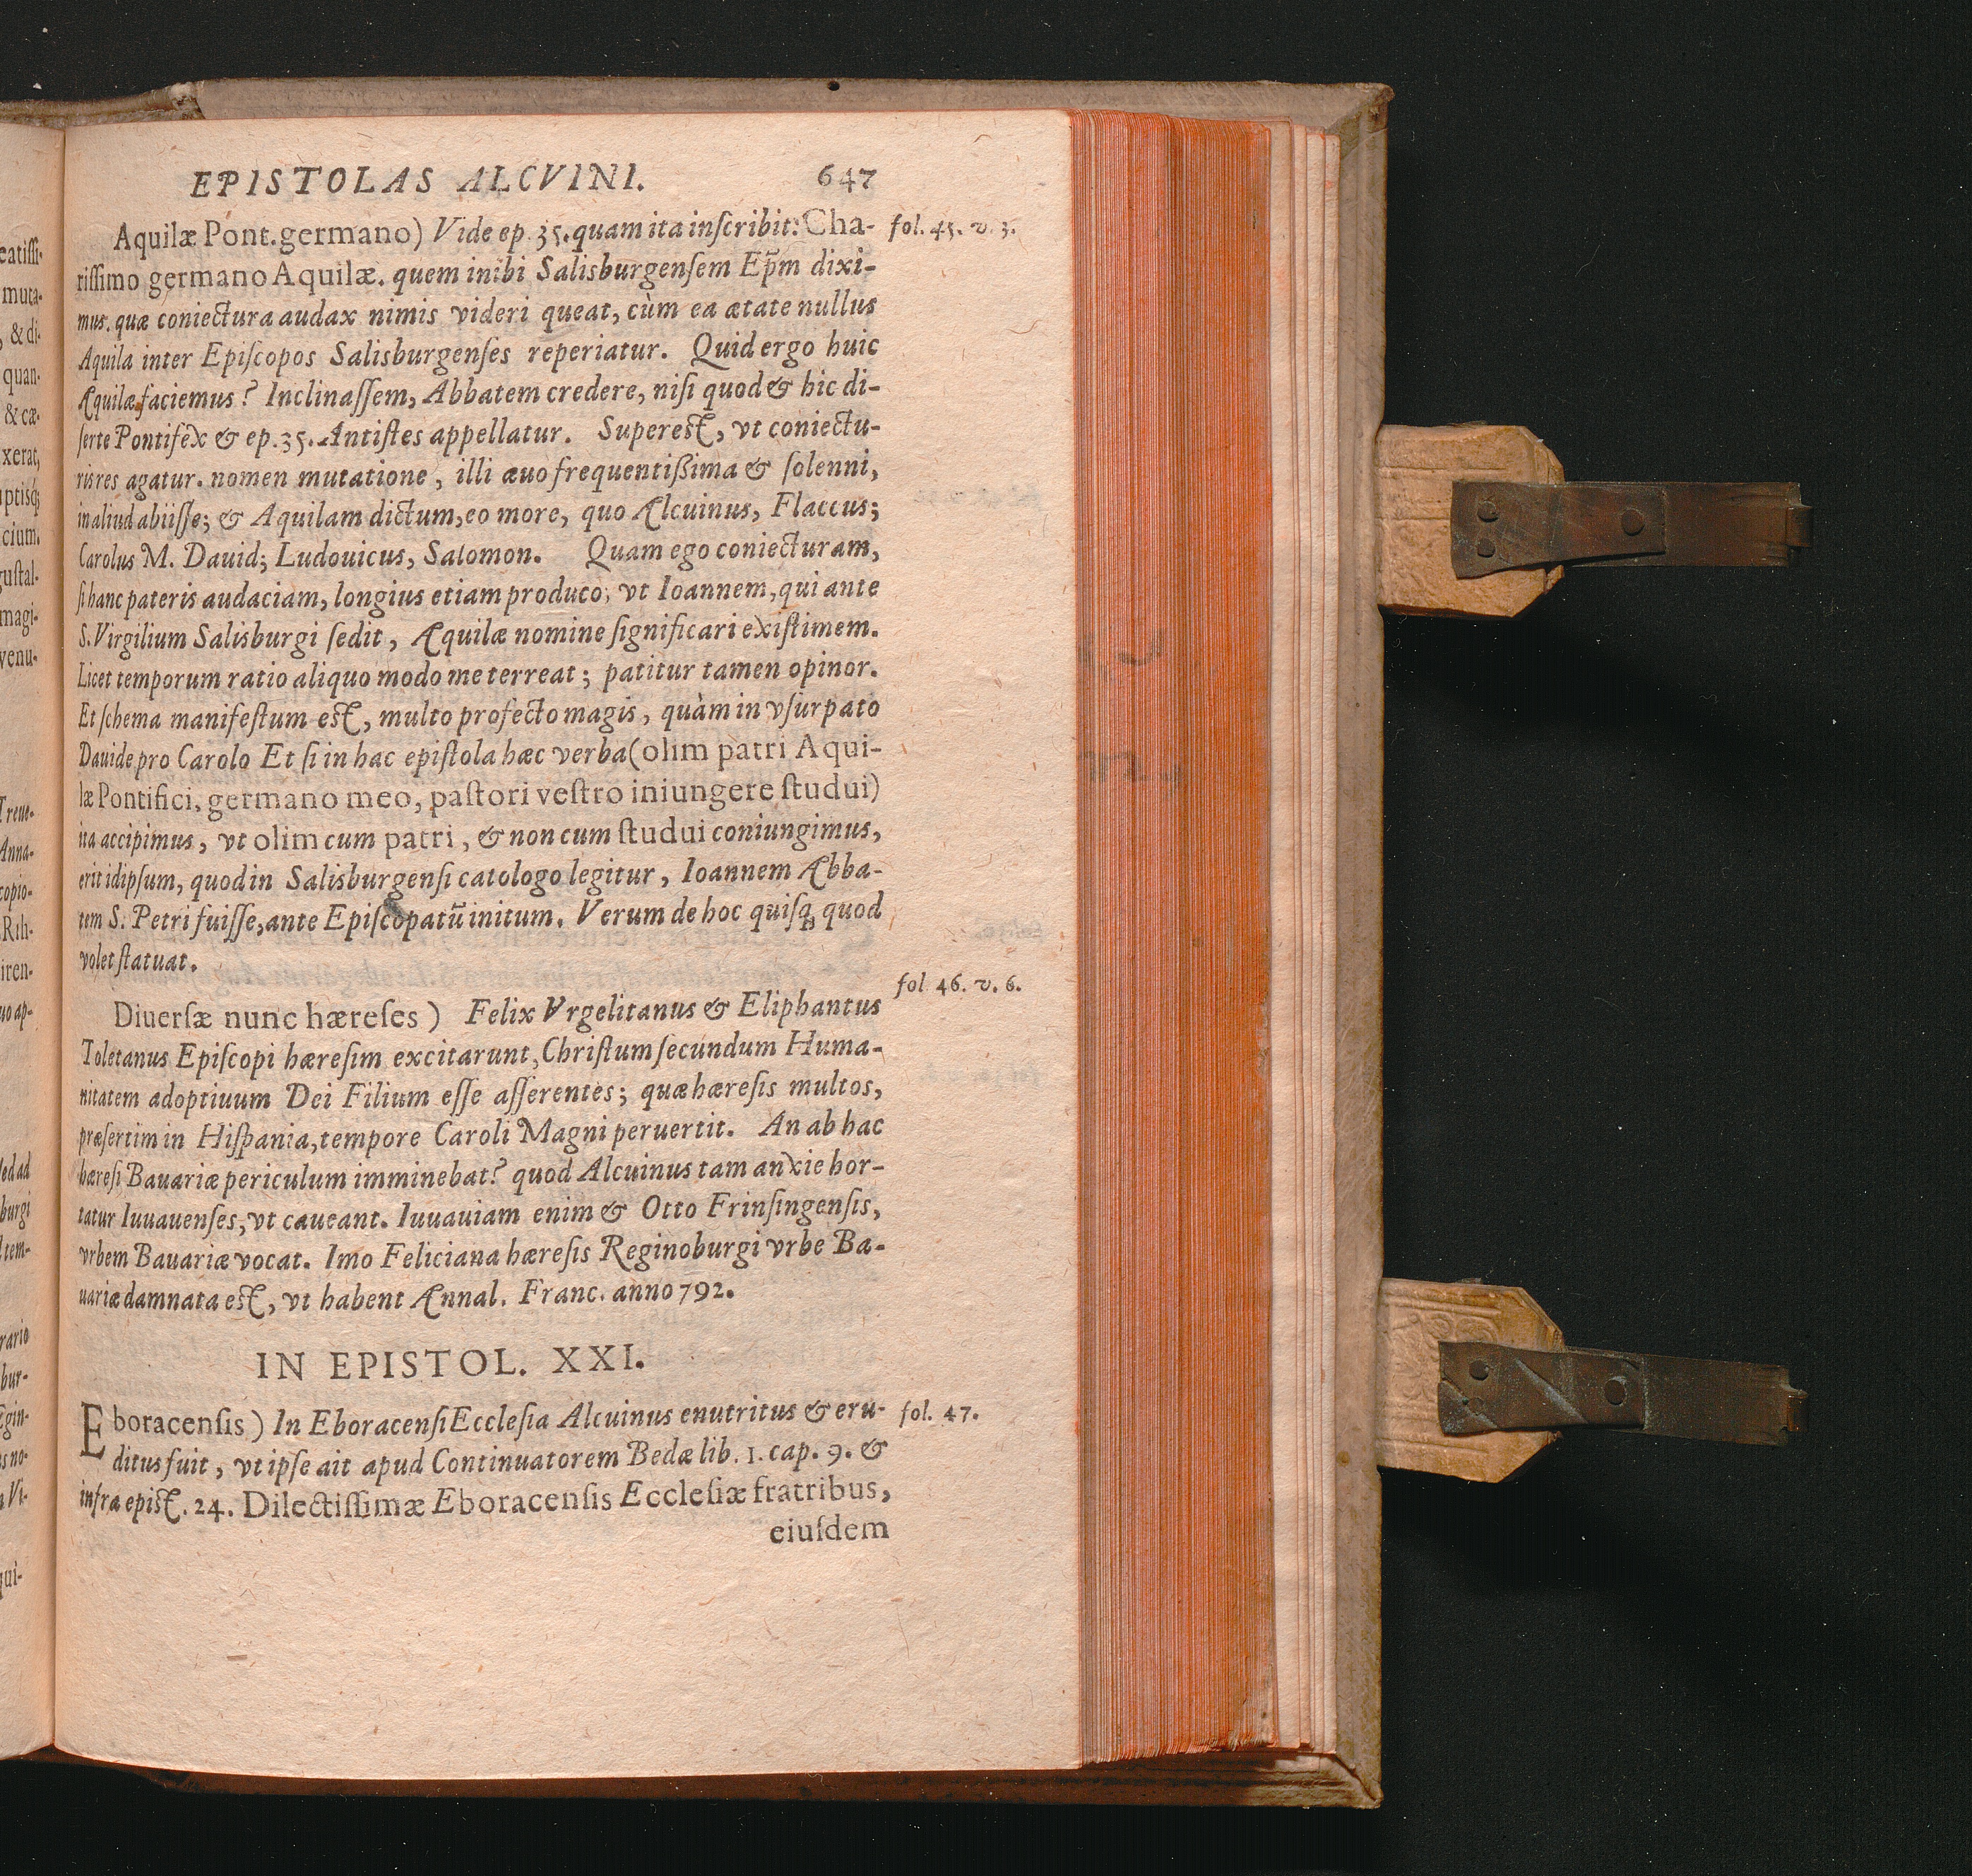 EPISTOLAS ALCVINI. 647
Aquilæ Pont. germano) Vide ep. 35. quam ita inſcribit: Cha- fol. 45. v. 3.
riſſimo germano Aquilæ. quem inibi Salisburgenſem Ep̃m dixi-
mus. quæ coniectura audax nimis videri queat, cùm ea ætate nullus
Aquila inter Epiſcopos Salisburgenſes reperiatur. Quid ergo huic
Aquilæ faciemus? Inclinaſſem, Abbatem credere, niſi quod & hic di-
ſerte Pontifex & ep. 35. Antiſtes appellatur. Supereſt, vt coniectu-
ris res agatur. nomen mutatione, illi æuo frequentißima & ſolenni,
in aliud abiiſſe; & Aquilam dictum, eo more, quo Alcuinus, Flaccus;
Carolus M. Dauid; Ludouicus, Salomon. Quam ego coniecturam,
ſi hanc pateris audaciam, longius etiam produco; vt Ioannem, qui ante
S. Virgilium Salisburgi ſedit, Aquilæ nomine ſignificari exiſtimem.
Licet temporum ratio aliquo modo me terreat; patitur tamen opinor.
Et ſchema manifeſtum eſt, multo profecto magis, quàm in vſurpato
Dauide pro Carolo Et ſi in hac epiſtola hæc verba (olim patri Aqui-
læ Pontifici, germano meo, paſtori veſtro iniungere ſtudui)
ita accipimus, vt olim cum patri, & non cum ſtudui coniungimus,
erit id ipſum, quod in Salisburgenſi catologo legitur, Ioannem Abba-
tem S. Petri fuiſſe, ante Epiſcopatũ initum. Verum de hoc quiſq; quod
volet ſtatuat.
Diuerſæ nunc hæreſes) Felix Vrgelitanus & Eliphantus fol. 46. v. 6.
Toletanus Epiſcopi hæreſim excitarunt, Chriſtum ſecundum Huma-
nitatem adoptiuum Dei Filium eſſe aſſerentes; quæ hæreſis multos,
præſertim in Hiſpania, tempore Caroli Magni peruertit. An ab hac
hæreſi Bauariæ periculum imminebat? quod Alcuinus tam anxie hor-
tatur Iuuauenſes, vt caueant. Iuuauiam enim & Otto Frinſingenſis,
vrbem Bauariæ vocat. Imo Feliciana hæreſis Reginoburgi vrbe Ba-
uariæ damnata eſt, vt habent Annal. Franc. anno 792.
IN EPISTOL. XXI.
Eboracenſis) In Eboracenſi Eccleſia Alcuinus enutritus & eru- fol. 47.
ditus fuit, vt ipſe ait apud Continuatorem Bedæ lib. 1. cap. 9. &
infra epiſt. 24. Dilectiſſimæ Eboracenſis Eccleſiæ fratribus,
eiuſdem